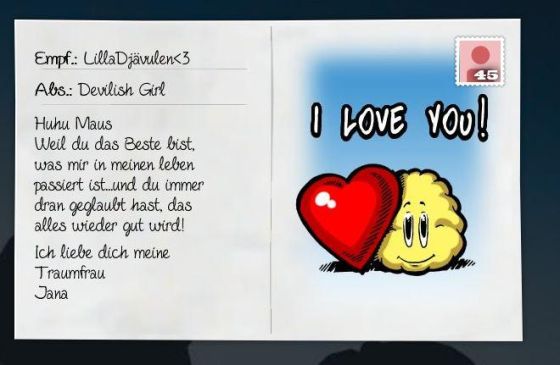 Empf.: LillaDjävulen<3
Abs.: Devilish Girl
Huhu Maus
Weil du das Beste bist,
was mir in meinen leben
passiert ist...und du immer
dran geglaubt hast, das
alles wieder gut wird!
Ich liebe dich meine
Traumfrau
Jana
45
I LOVE YOU!